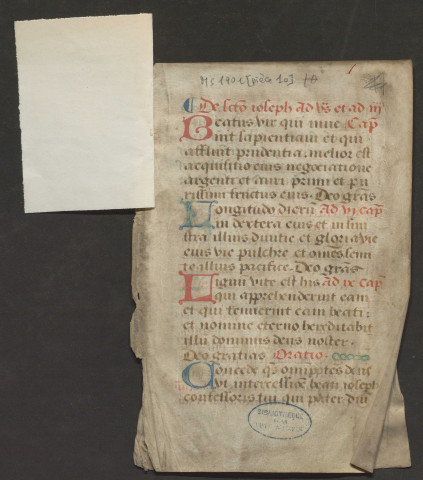 Ms 1901 [pièce 10]
De scto ioseph Ad vs et ad iii
Beatus vir qui inue Cap
nit sapientiam et qui
affluit prudentia melior est
acquisitio eius negociatione
argenti et auri primi et pu
rissimi fructus eius. Deo gras
Longitudo dierũ Ad vi cap
in dextera eius et in sini
stra illius diuitie et gloria vie
eius vie pulchre et omẽs semi
te illius pacifice. Deo grãs
Lignũ vite est his Ad ix cap
qui apprehenderint eam
et qui tenuerint eam beati:
et nomine eterno hereditabit
illũ dominus deus noster.
Deo gratias Oratio
Concede qs omipotẽs deus
vt intercessiõe beati ioseph
confessoris tui qui pater dni
BIBLIOTHEQUE